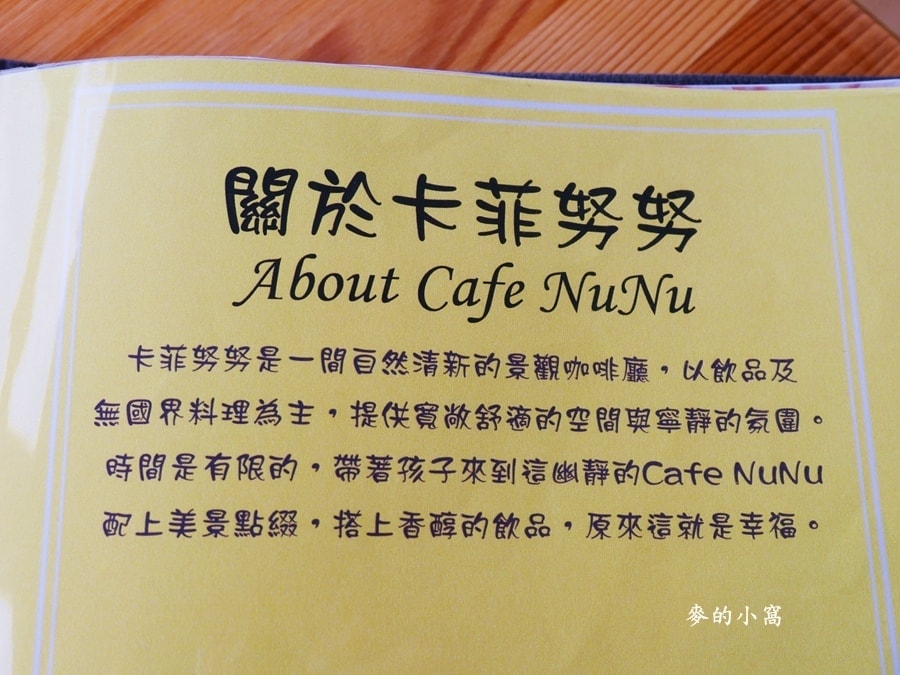 關於卡菲努努
About Cafe NuNu
卡菲努努是一間自然清新的景觀咖啡廳，以飲品及
無國界料理為主，提供寬敞舒適的空間與寧靜的氛圍。
時間是有限的，帶著孩子來到這幽靜的Cafe NuNu
配上美景點綴，搭上香醇的飲品，原來這就是幸福。
麥的小窩